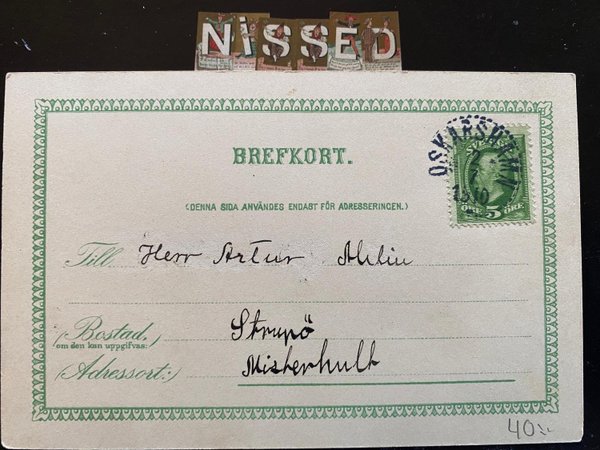 NiSSED
BREFKORT.
(DENNA SIDA ANVÄNDES ENDAST FÖR ADRESSERINGEN.)
OSKARSHAMN
7
1910
SVERIGE
ÖRE 5 ÖRE
Till Herr Artur Ahlin
(Bostad, Strupö
om den kan uppgifvas:)
(Adressort:) Misterhult
40:-